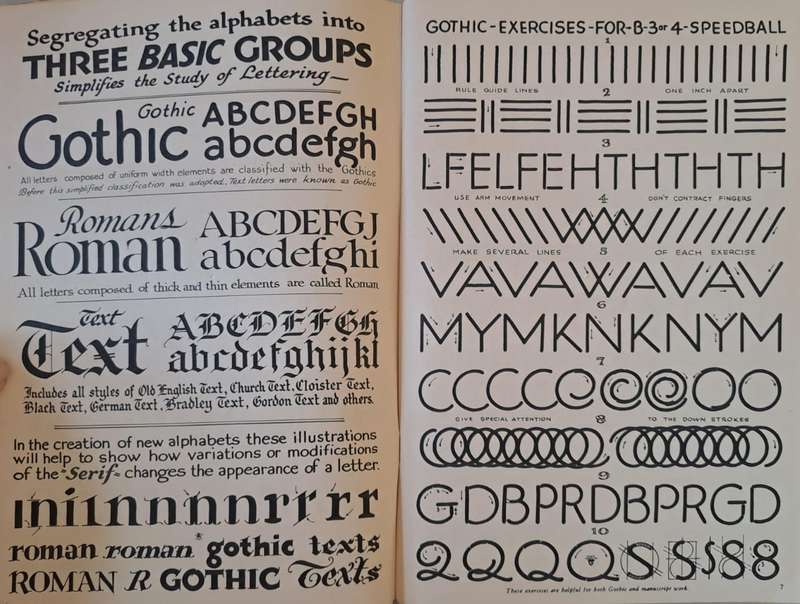 Segregating the alphabets into
THREE BASIC GROUPS
Simplifies the Study of Lettering—
Gothic Gothic ABCDEFGH
abcdefgh
All letters composed of uniform width elements are classified with the Gothics
Before this simplified classification was adopted, Text letters were known as Gothic
Romans ABCDEFGJ
Roman abcdefghi
All letters composed of thick and thin elements are called Roman
Text ABCDEFGh
Text abcdefghijkl
Includes all styles of Old English Text, Church Text, Cloister Text,
Black Text, German Text, Bradley Text, Gordon Text and others.
In the creation of new alphabets these illustrations
will help to show how variations or modifications
of the "Serif" changes the appearance of a letter.
roman roman gothic texts
ROMAN R GOTHIC Texts
GOTHIC-EXERCISES-FOR-B-3 or 4-SPEEDBALL
1
RULE GUIDE LINES 2 ONE INCH APART
3
LFELFEHTHTHTHTH
USE ARM MOVEMENT 4 DON'T CONTRACT FINGERS
MAKE SEVERAL LINES 5 OF EACH EXERCISE
VAVAWAVAV
6
MYMKNKNYM
7
GIVE SPECIAL ATTENTION 8 TO THE DOWN STROKES
9
GDBPRDBPRGD
10
These exercises are helpful for both Gothic and manuscript work.
7